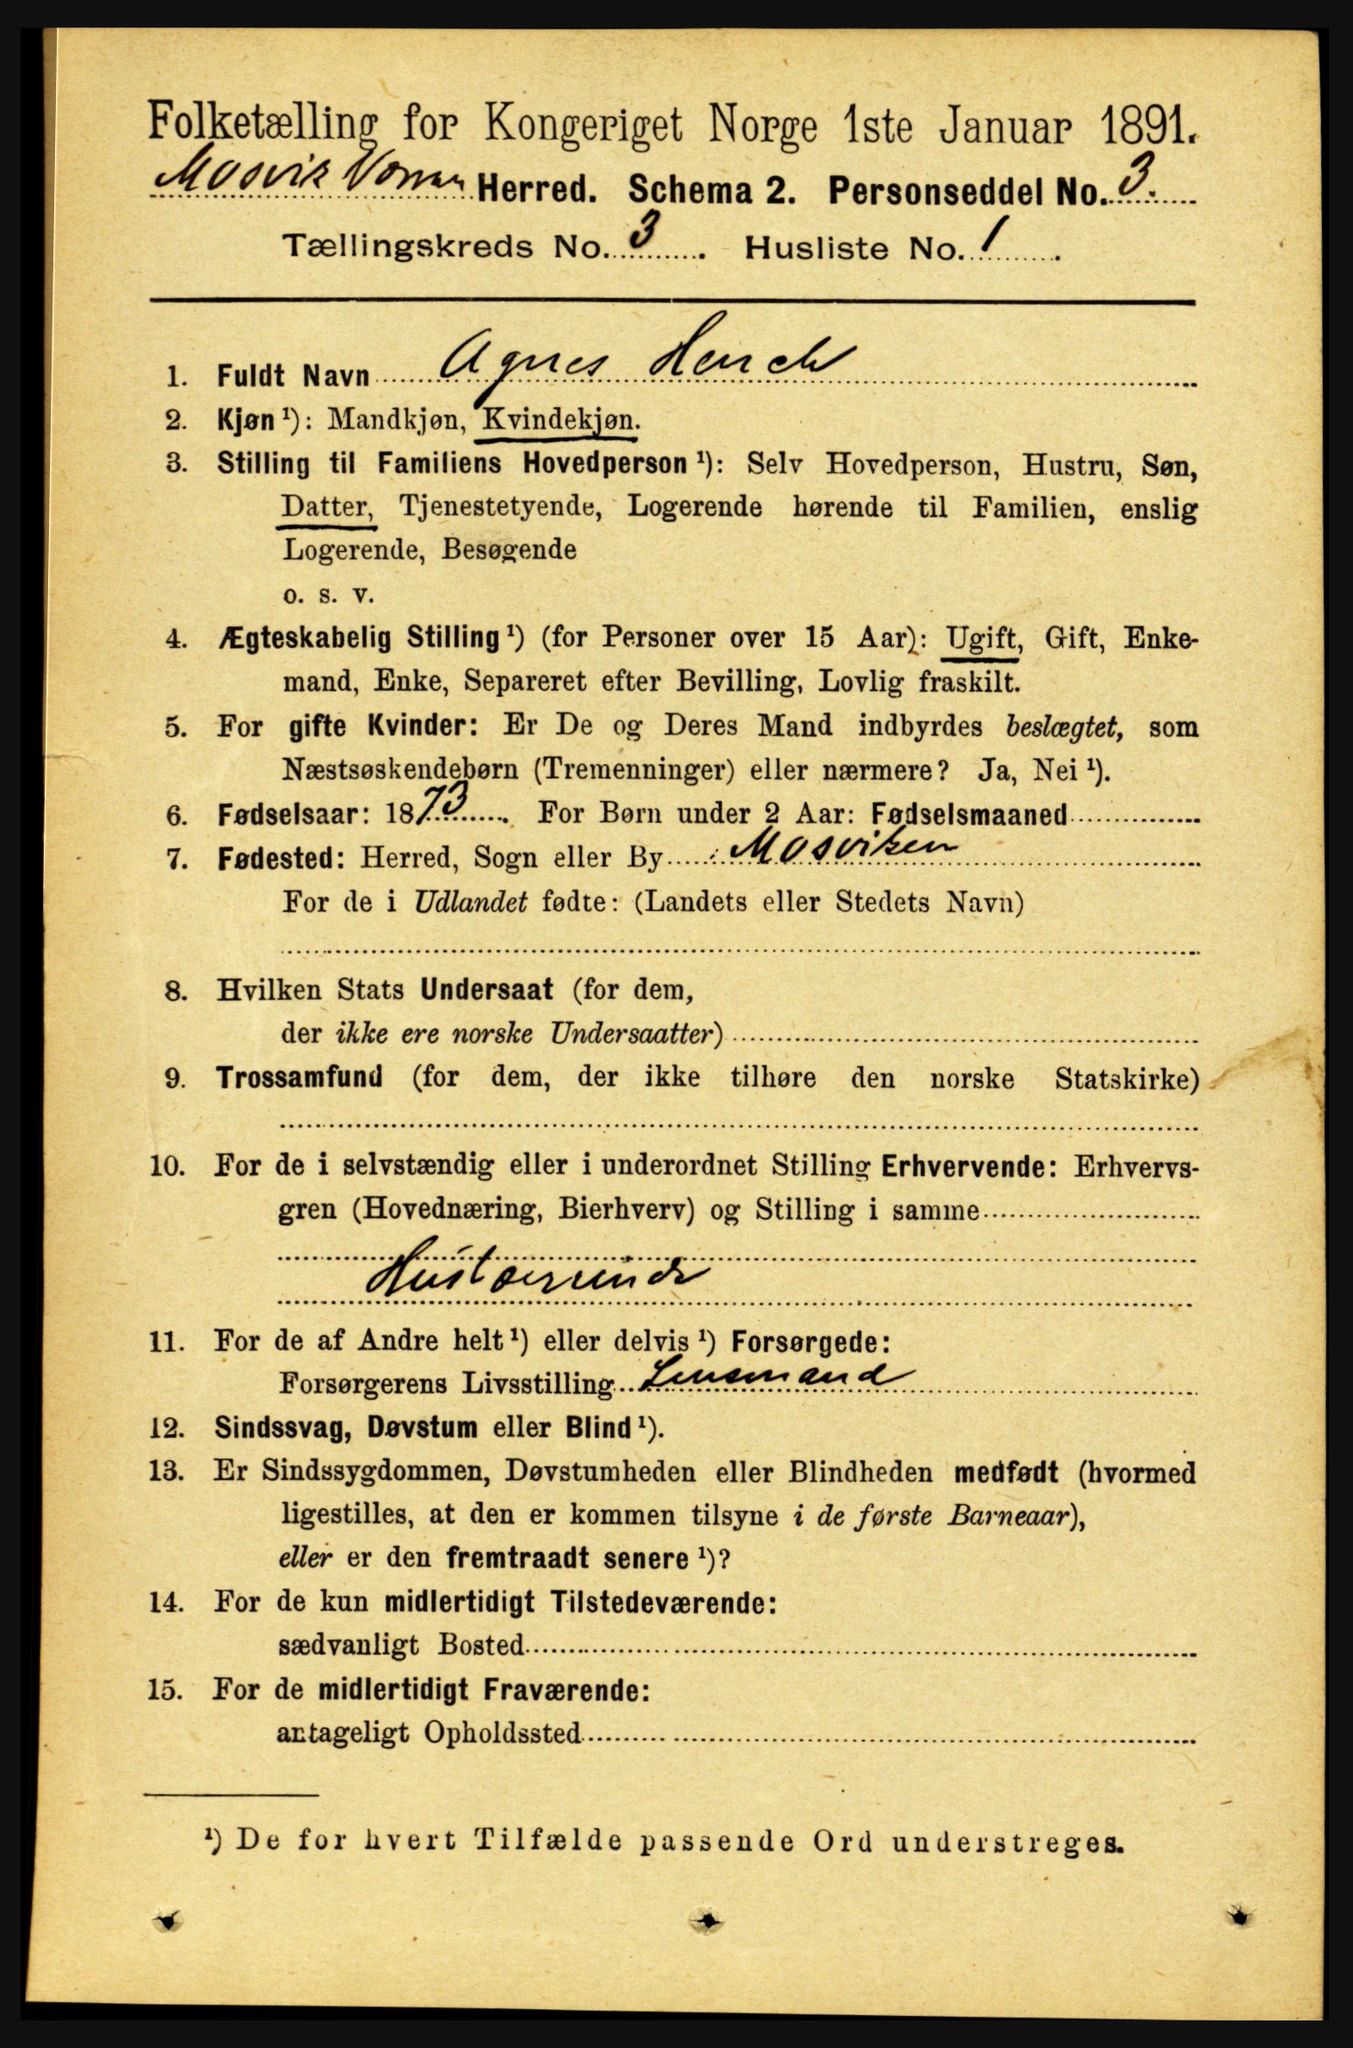 Folketælling for Kongeriget Norge 1ste Januar 1891.
Mosvik Herred. Schema 2. Personseddel No. 3.
Tællingskreds No. 3. Husliste No. 1.
1. Fuldt Navn Agnes Hench
2. Kjøn ¹): Mandkjøn, Kvindekjøn.
3. Stilling til Familiens Hovedperson ¹): Selv Hovedperson, Hustru, Søn,
Datter, Tjenestetyende, Logerende hørende til Familien, enslig
Logerende, Besøgende
o. s. v.
4. Ægteskabelig Stilling ¹) (for Personer over 15 Aar): Ugift, Gift, Enke-
mand, Enke, Separeret efter Bevilling, Lovlig fraskilt.
5. For gifte Kvinder: Er De og Deres Mand indbyrdes beslægtet, som
Næstsøskendebørn (Tremenninger) eller nærmere? Ja, Nei ¹).
6. Fødselsaar: 1873. For Børn under 2 Aar: Fødselsmaaned
7. Fødested: Herred, Sogn eller By Mosviken
For de i Udlandet fødte: (Landets eller Stedets Navn)
8. Hvilken Stats Undersaat (for dem,
der ikke ere norske Undersaatter)
9. Trossamfund (for dem, der ikke tilhøre den norske Statskirke)
10. For de i selvstændig eller i underordnet Stilling Erhvervende: Erhvervs-
gren (Hovednæring, Bierhverv) og Stilling i samme
11. For de af Andre helt ¹) eller delvis ¹) Forsørgede:
Forsørgerens Livsstilling Lensmand
12. Sindssvag, Døvstum eller Blind ¹).
13. Er Sindssygdommen, Døvstumheden eller Blindheden medfødt (hvormed
ligestilles, at den er kommen tilsyne i de første Barneaar),
eller er den fremtraadt senere ¹)?
14. For de kun midlertidigt Tilstedeværende:
sædvanligt Bosted
15. For de midlertidigt Fraværende:
antageligt Opholdssted
¹) De for hvert Tilfælde passende Ord understreges.